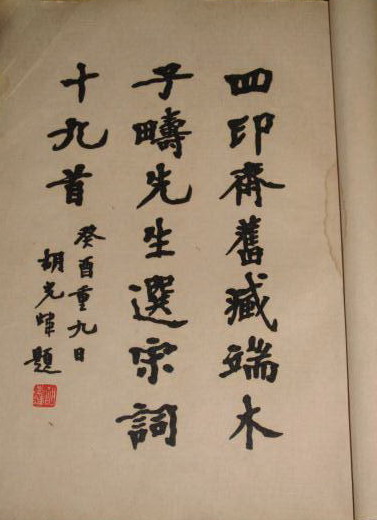 四印齋舊臧端木
子疇先生選宋詞
十九首
癸酉重九日
胡光煒題